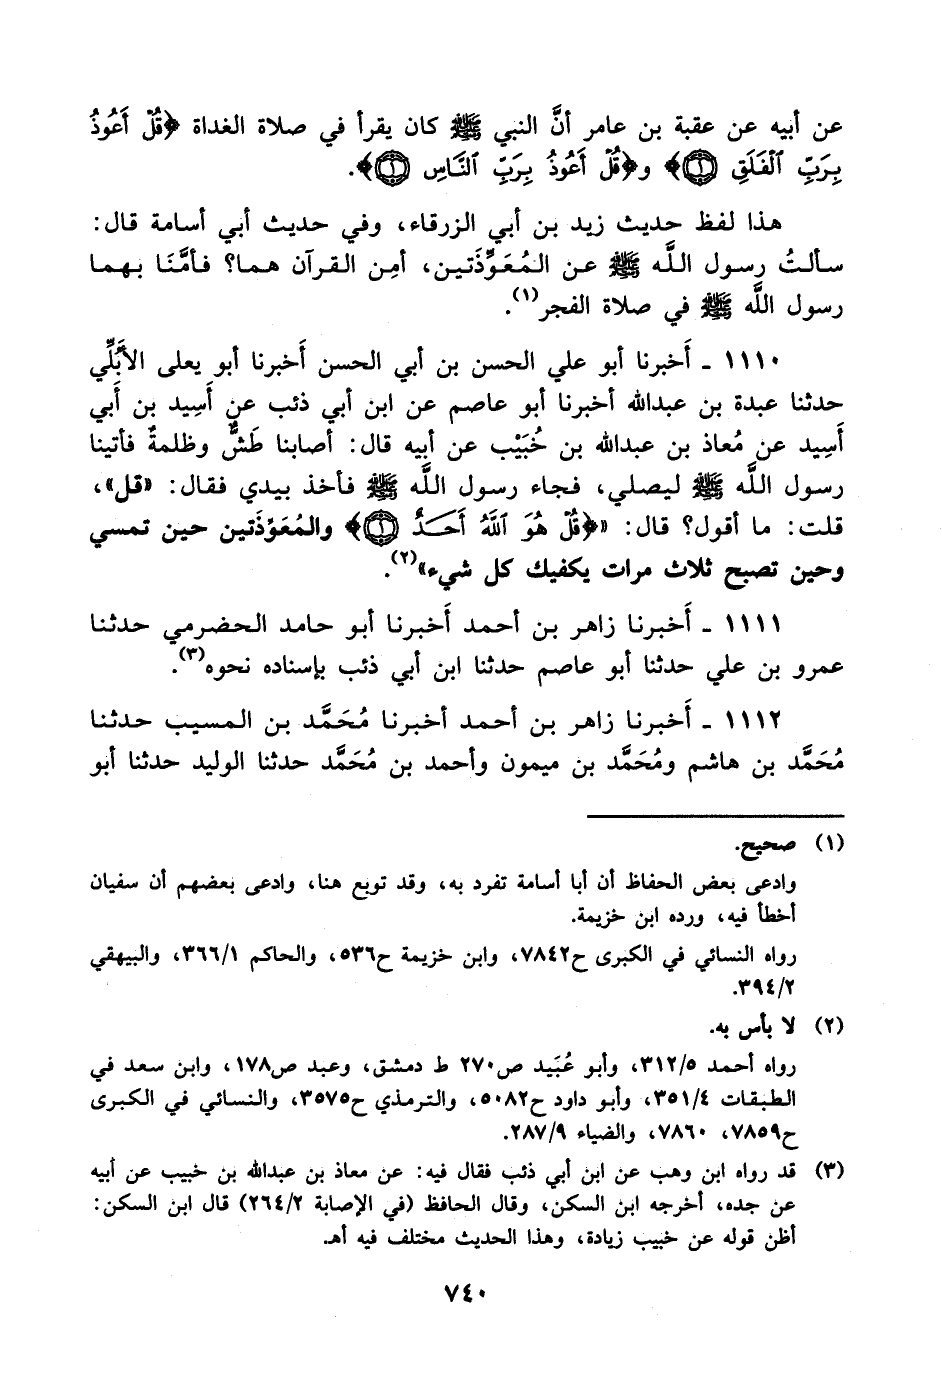 عن أبيه عن عقبة بن عامر أنَّ النبي ﷺ كان يقرأ في صلاة الغداة ﴿قُلْ أَعُوذُ
بِرَبِّ ٱلْفَلَقِ ۝١﴾ و﴿قُلْ أَعُوذُ بِرَبِّ ٱلنَّاسِ ۝١﴾.
هذا لفظ حديث زيد بن أبي الزرقاء، وفي حديث أبي أسامة قال:
سألتُ رسول اللَّه ﷺ عن المُعَوِّذَتين، أمِن القرآن هما؟ فأمَّنَا بهما
رسول اللَّه ﷺ في صلاة الفجر(١).
١١١٠ ـ أَخبرنا أبو علي الحسن بن أبي الحسن أَخبرنا أبو يعلى الأُبُلِّي
حدثنا عبدة بن عبدالله أخبرنا أبو عاصم عن ابن أبي ذئب عن أَسِيد بن أَبي
أَسِيد عن مُعاذ بن عبدالله بن خُبَيْب عن أبيه قال: أصابنا طَشٌّ وظلمةٌ فأتينا
رسول اللَّه ﷺ ليصلي، فجاء رسول اللَّه ﷺ فأخذ بيدي فقال: «قل»،
قلت: ما أقول؟ قال: «﴿قُلْ هُوَ ٱللَّهُ أَحَدٌ ۝١﴾ والمُعَوِّذَتين حين تمسي
وحين تصبح ثلاث مرات يكفيك كل شيء»(٢).
١١١١ ـ أَخبرنا زاهر بن أحمد أَخبرنا أبو حامد الحضرمي حدثنا
عمرو بن علي حدثنا أبو عاصم حدثنا ابن أبي ذئب بإسناده نحوه(٣).
١١١٢ ـ أَخبرنا زاهر بن أحمد أخبرنا مُحَمَّد بن المسيب حدثنا
مُحَمَّد بن هاشم ومُحَمَّد بن ميمون وأحمد بن مُحَمَّد حدثنا الوليد حدثنا أبو
(١) صحيح.
وادعى بعض الحفاظ أن أبا أسامة تفرد به، وقد توبع هنا، وادعى بعضهم أن سفيان
أخطأ فيه، ورده ابن خزيمة.
رواه النسائي في الكبرى ح٧٨٤٢، وابن خزيمة ح٥٣٦، والحاكم ٣٦٦/١، والبيهقي
٣٩٤/٢.
(٢) لا بأس به.
رواه أحمد ٣١٢/٥، وأبو عُبَيد ص٢٧٠ ط دمشق، وعبد ص١٧٨، وابن سعد في
الطبقات ٣٥١/٤، وأبو داود ح٥٠٨٢، والترمذي ح٣٥٧٥، والنسائي في الكبرى
ح٧٨٥٩، ٧٨٦٠، والضياء ٢٨٧/٩.
(٣) قد رواه ابن وهب عن ابن أبي ذئب فقال فيه: عن معاذ بن عبدالله بن خبيب عن أبيه
عن جده، أخرجه ابن السكن، وقال الحافظ (في الإصابة ٢٦٤/٢) قال ابن السكن:
أظن قوله عن خبيب زيادة، وهذا الحديث مختلف فيه أهـ.
٧٤٠